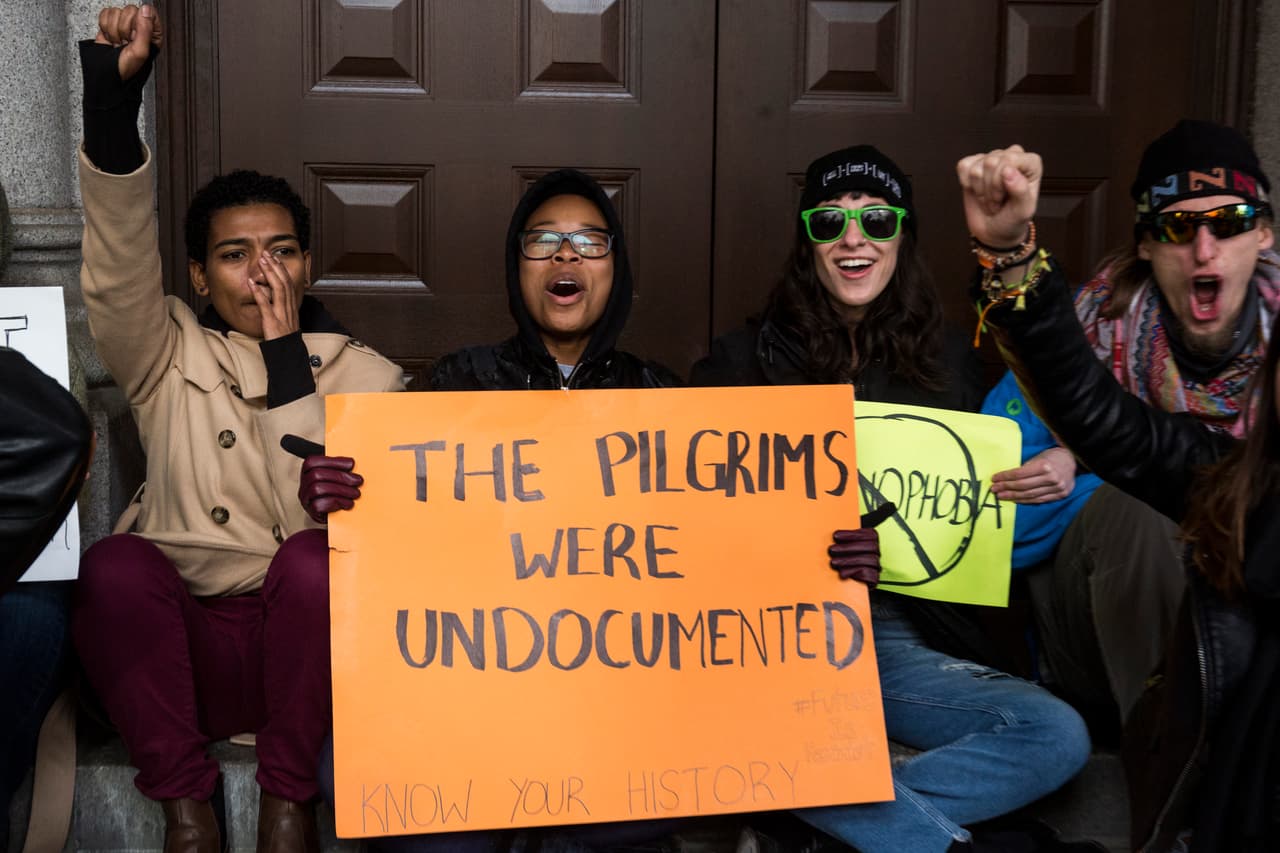 THE PILGRIMS
WERE
UNDOCUMENTED
#Future
Is
KNOW YOUR HISTORY
NOPHOBIA